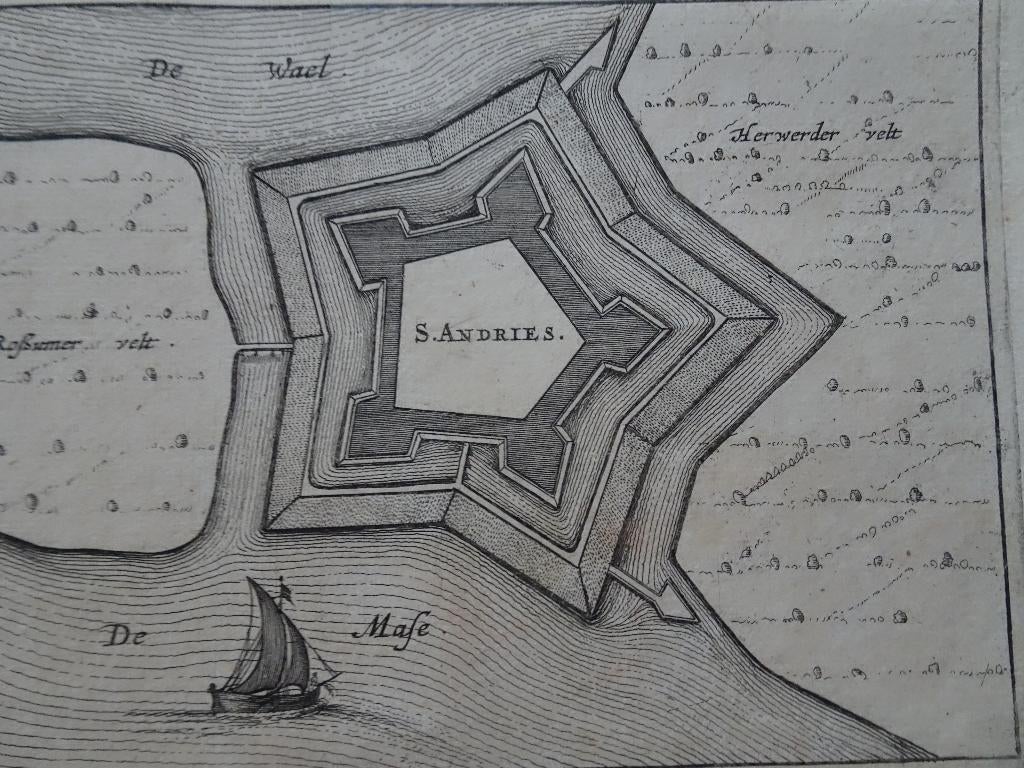 De Wael.
Herwerder velt
S. ANDRIES.
Roſsumer velt.
De Maſe.